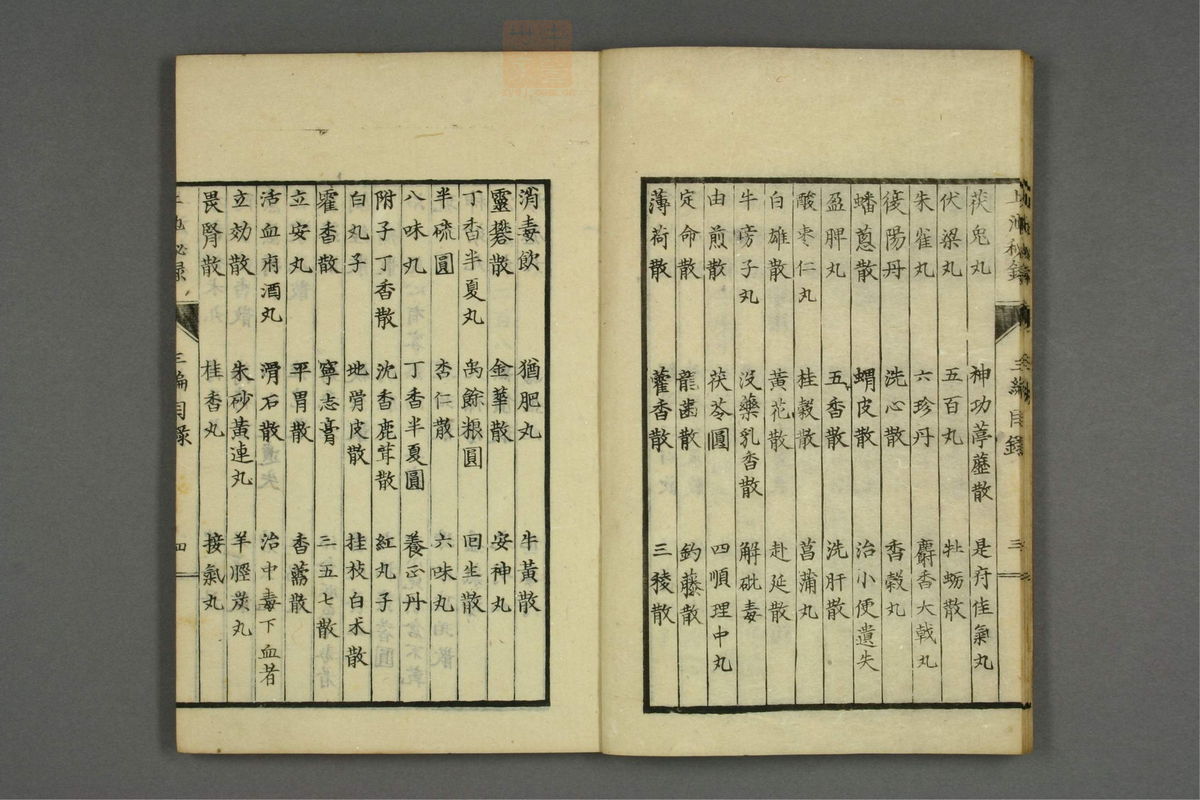 上池秘録 三編目録 三
茯兔丸 神功葶藶散
伏梁丸 五百丸 牡蛎散
朱雀丸 六珍丹 麝香大戟丸
復陽丹 洗心散 香穀丸
蟠葱散 蝟皮散 治小便遺失
盈脾丸 五香散 洗肝散
酸枣仁丸 桂穀散 菖蒲丸
白雄散 黄花散 赴延散
牛蒡子丸 没藥乳香散 解砒毒
由煎散 茯苓圓 四順理中丸
定命散 龍歯散 釣藤散
薄荷散 藿香散 三稜散
消毒飲 猶肥丸 牛黄散
靈礬散 金華散 安神丸
丁香半夏丸 禹餘粮圓 回生散
半硫圓 杏仁散 六味丸
八味丸 丁香半夏圓 養正丹
附子丁香散 沈香鹿茸散 紅丸子
白丸子 地骨皮散 桂枝白朮散
藿香散 寧志膏 三五七散
立安丸 平胃散 香薷散
活血府酒丸 滑石散 治中毒下血者
立効散 朱砂黄連丸 羊脛炭丸
畏腎散 桂香丸 接氣丸
上池秘録 三編目録 四